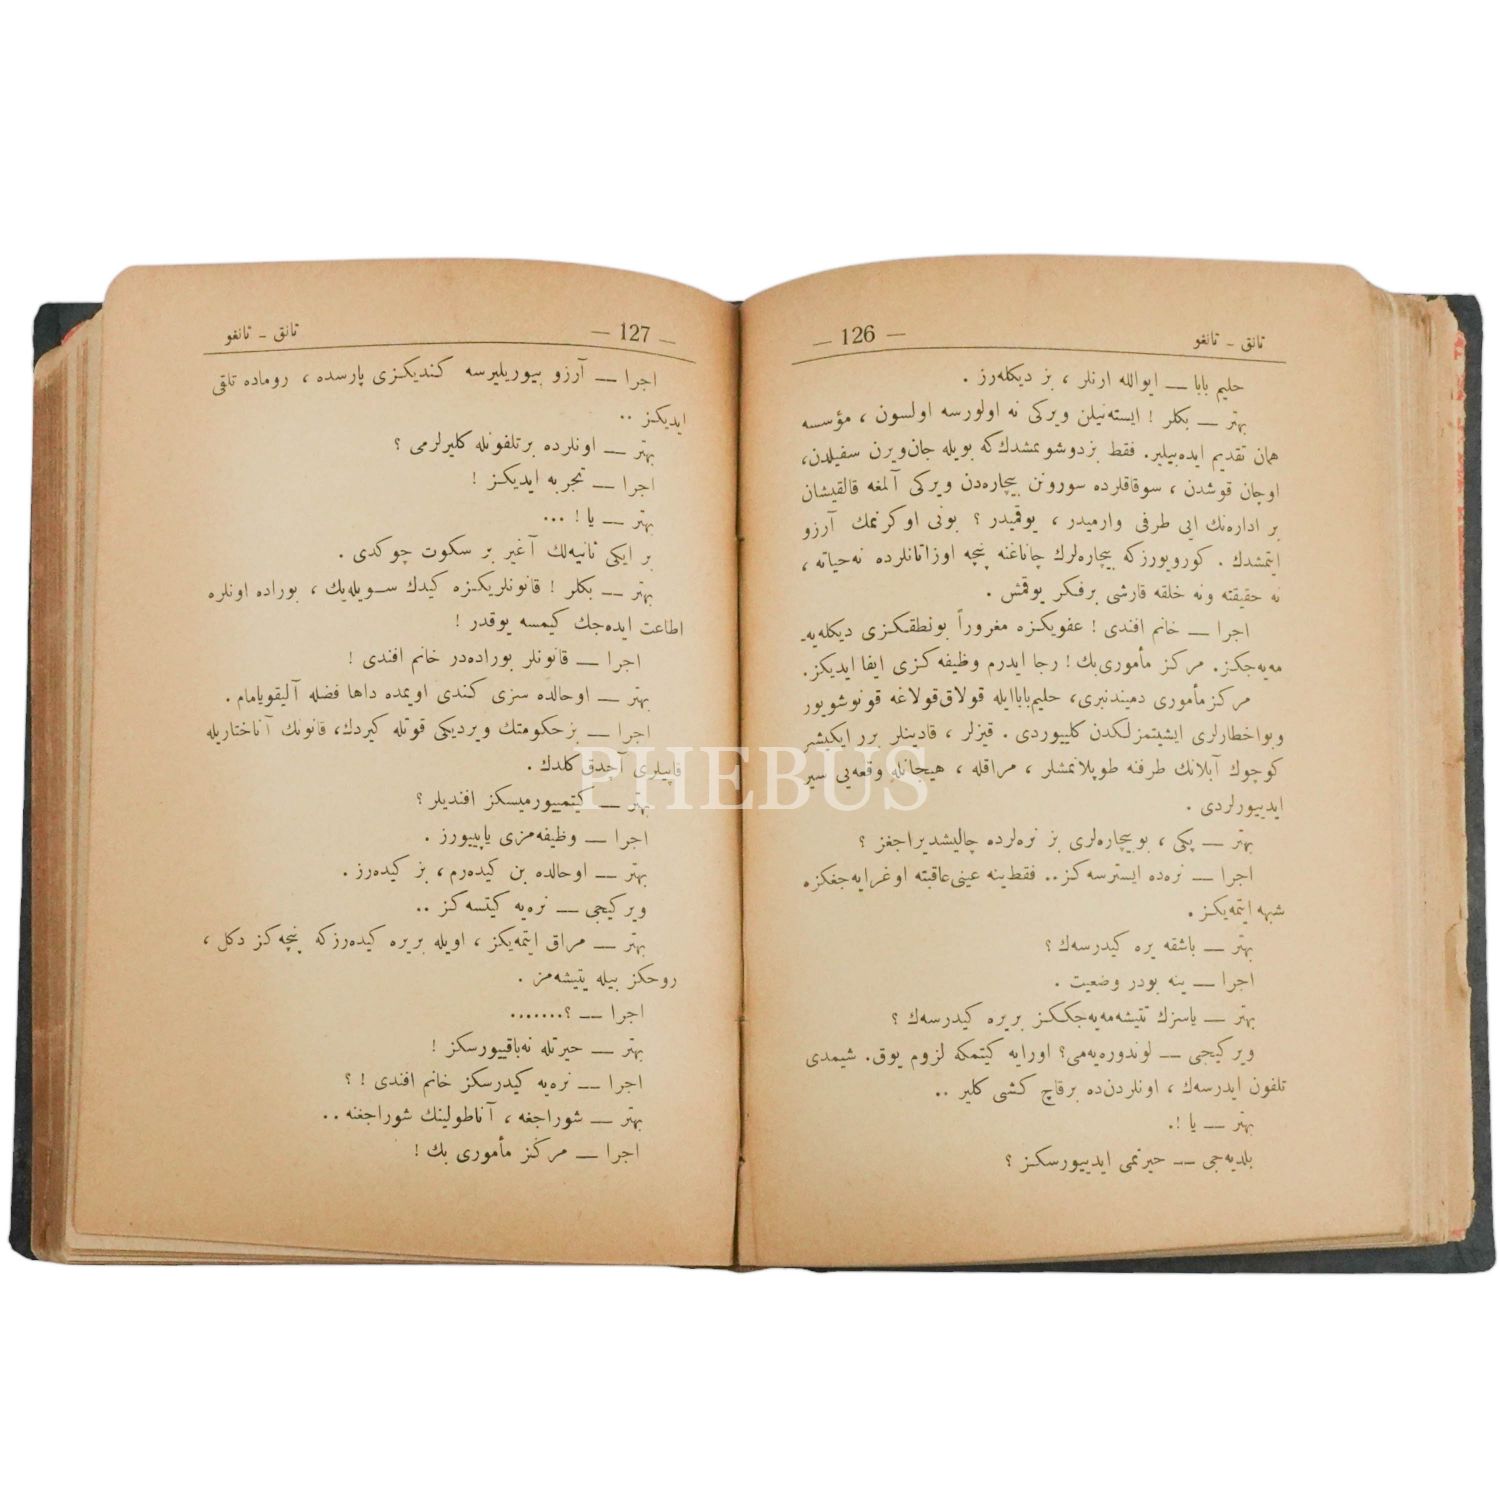 — 126 —
تانق - تانغو
حلیم بابا — ایوالله ارنلر ، بز دیكله‌رز .
بهتر — بكلر ! ایسته‌نیلن ویركی نه اولورسه اولسون ، مؤسسه
همان تقدیم ایده‌بیلیر. فقط بزدوشونمشدك كه بویله جان‌ویرن سفیلدن،
اوچان قوشدن ، سوقاقلرده سورونن بیچاره‌دن ویركی آلمغه قالقیشان
بر اداره‌نك ایی طرفی وارمیدر ، یوقمیدر ؟ بونی اوكرنمك آرزو
ایتمشدك . كورویورزكه بیچاره‌لرك چاناغنه پنچه اوزاتانلرده نه‌حیاته ،
نه حقیقته ونه خلقه قارشی برفكر یوقمش .
اجرا — خانم افندی ! عفویكزه مغروراً بونطقكزی دیكله‌یه‌ـ
مه‌یه‌جكز. مركز مأموری‌بك ! رجا ایدرم وظیفه‌كزی ایفا ایدیكز.
مركزمأموری دمیندنبری، حلیم‌باباایله قولاق‌قولاغه قونوشویور
وبواخطارلری ایشیتمزلكدن كلییوردی . قیزلر ، قادینلر برر ایكیشیر
كوچوك آبلانك طرفنه طوپلانمشلر ، مراقله ، هیجانله وقعه‌یی سیر
ایدییورلردی .
بهتر — پكی ، بوبیچاره‌لری بز نره‌لرده چالیشدیراجغز ؟
اجرا — نره‌ده ایسترسه‌كز.. فقط‌ینه عینی‌عاقبته اوغرایه‌جغكزه
شبهه ایتمه‌یكز .
بهتر — باشقه یره كیدرسه‌ك ؟
اجرا — ینه بودر وضعیت .
بهتر — یاسزك تتیشه‌مه‌یه‌جككز بریره كیدرسه‌ك ؟
ویركیجی — لوندوره‌یه‌می؟ اورایه كیتمكه لزوم یوق. شیمدی
تلفون ایدرسه‌ك ، اونلردن‌ده برقاچ كشی كلیر ..
بهتر — یا !.
بلدیه‌جی — حیرتمی ایدییورسكز ؟
— 127 —
تانق - تانغو
اجرا — آرزو بیوریلیرسه كندیكزی پارسده ، روماده تلقی
ایدیكز ..
بهتر — اونلرده برتلفونله كلیرلرمی ؟
اجرا — تجربه ایدیكز !
بهتر — یا ! ...
بر ایكی ثانیه‌لك آغیر بر سكوت چوكدی .
بهتر — بكلر ! قانونلریكزه كیدك سویله‌یك ، بوراده اونلره
اطاعت ایده‌جك كیمسه یوقدر !
اجرا — قانونلر بوراده‌در خانم افندی !
بهتر — اوحالده سزی كندی اویمده داها فضله آلیقویامام .
اجرا — بزحكومتك ویردیكی قوتله كیردك، قانونك آناختاریله
قاپیلری آچدق كلدك .
بهتر — كیتمییورمیسكز افندیلر ؟
اجرا — وظیفه‌مزی یاپییورز .
بهتر — اوحالده بن كیده‌رم، بز كیده‌رز .
ویركیجی — نره‌یه كیتسه‌كز ..
بهتر — مراق ایتمه‌یكز ، اویله بریره كیده‌رزكه پنچه‌كز دكل ،
روحكز بیله یتیشه‌مز .
اجرا — ؟.......
بهتر — حیرتله نه‌باقییورسكز !
اجرا — نره‌یه كیدرسكز خانم افندی ! ؟
بهتر — شوراجغه ، آناطولینك شوراجغنه ..
اجرا — مركز مأموری بك !
PHEBUS